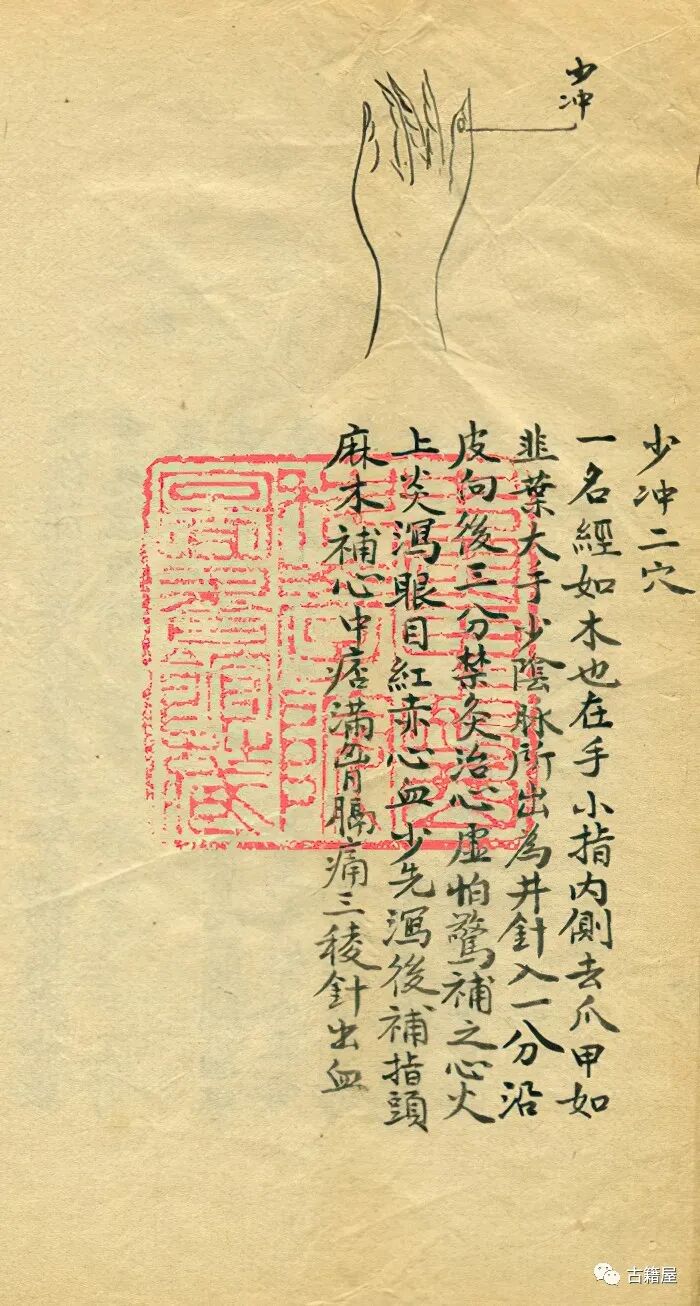 少冲
少冲二穴
一名經如木也在手小指内側去爪甲如
韭葉大手少陰脉所出為井針入一分沿
皮向後三分禁灸治心虚怕驚補之心火
上炎瀉眼目紅赤心血少先瀉後補指頭
麻木補心中痞滿胷膈痛三稜針出血
古籍屋